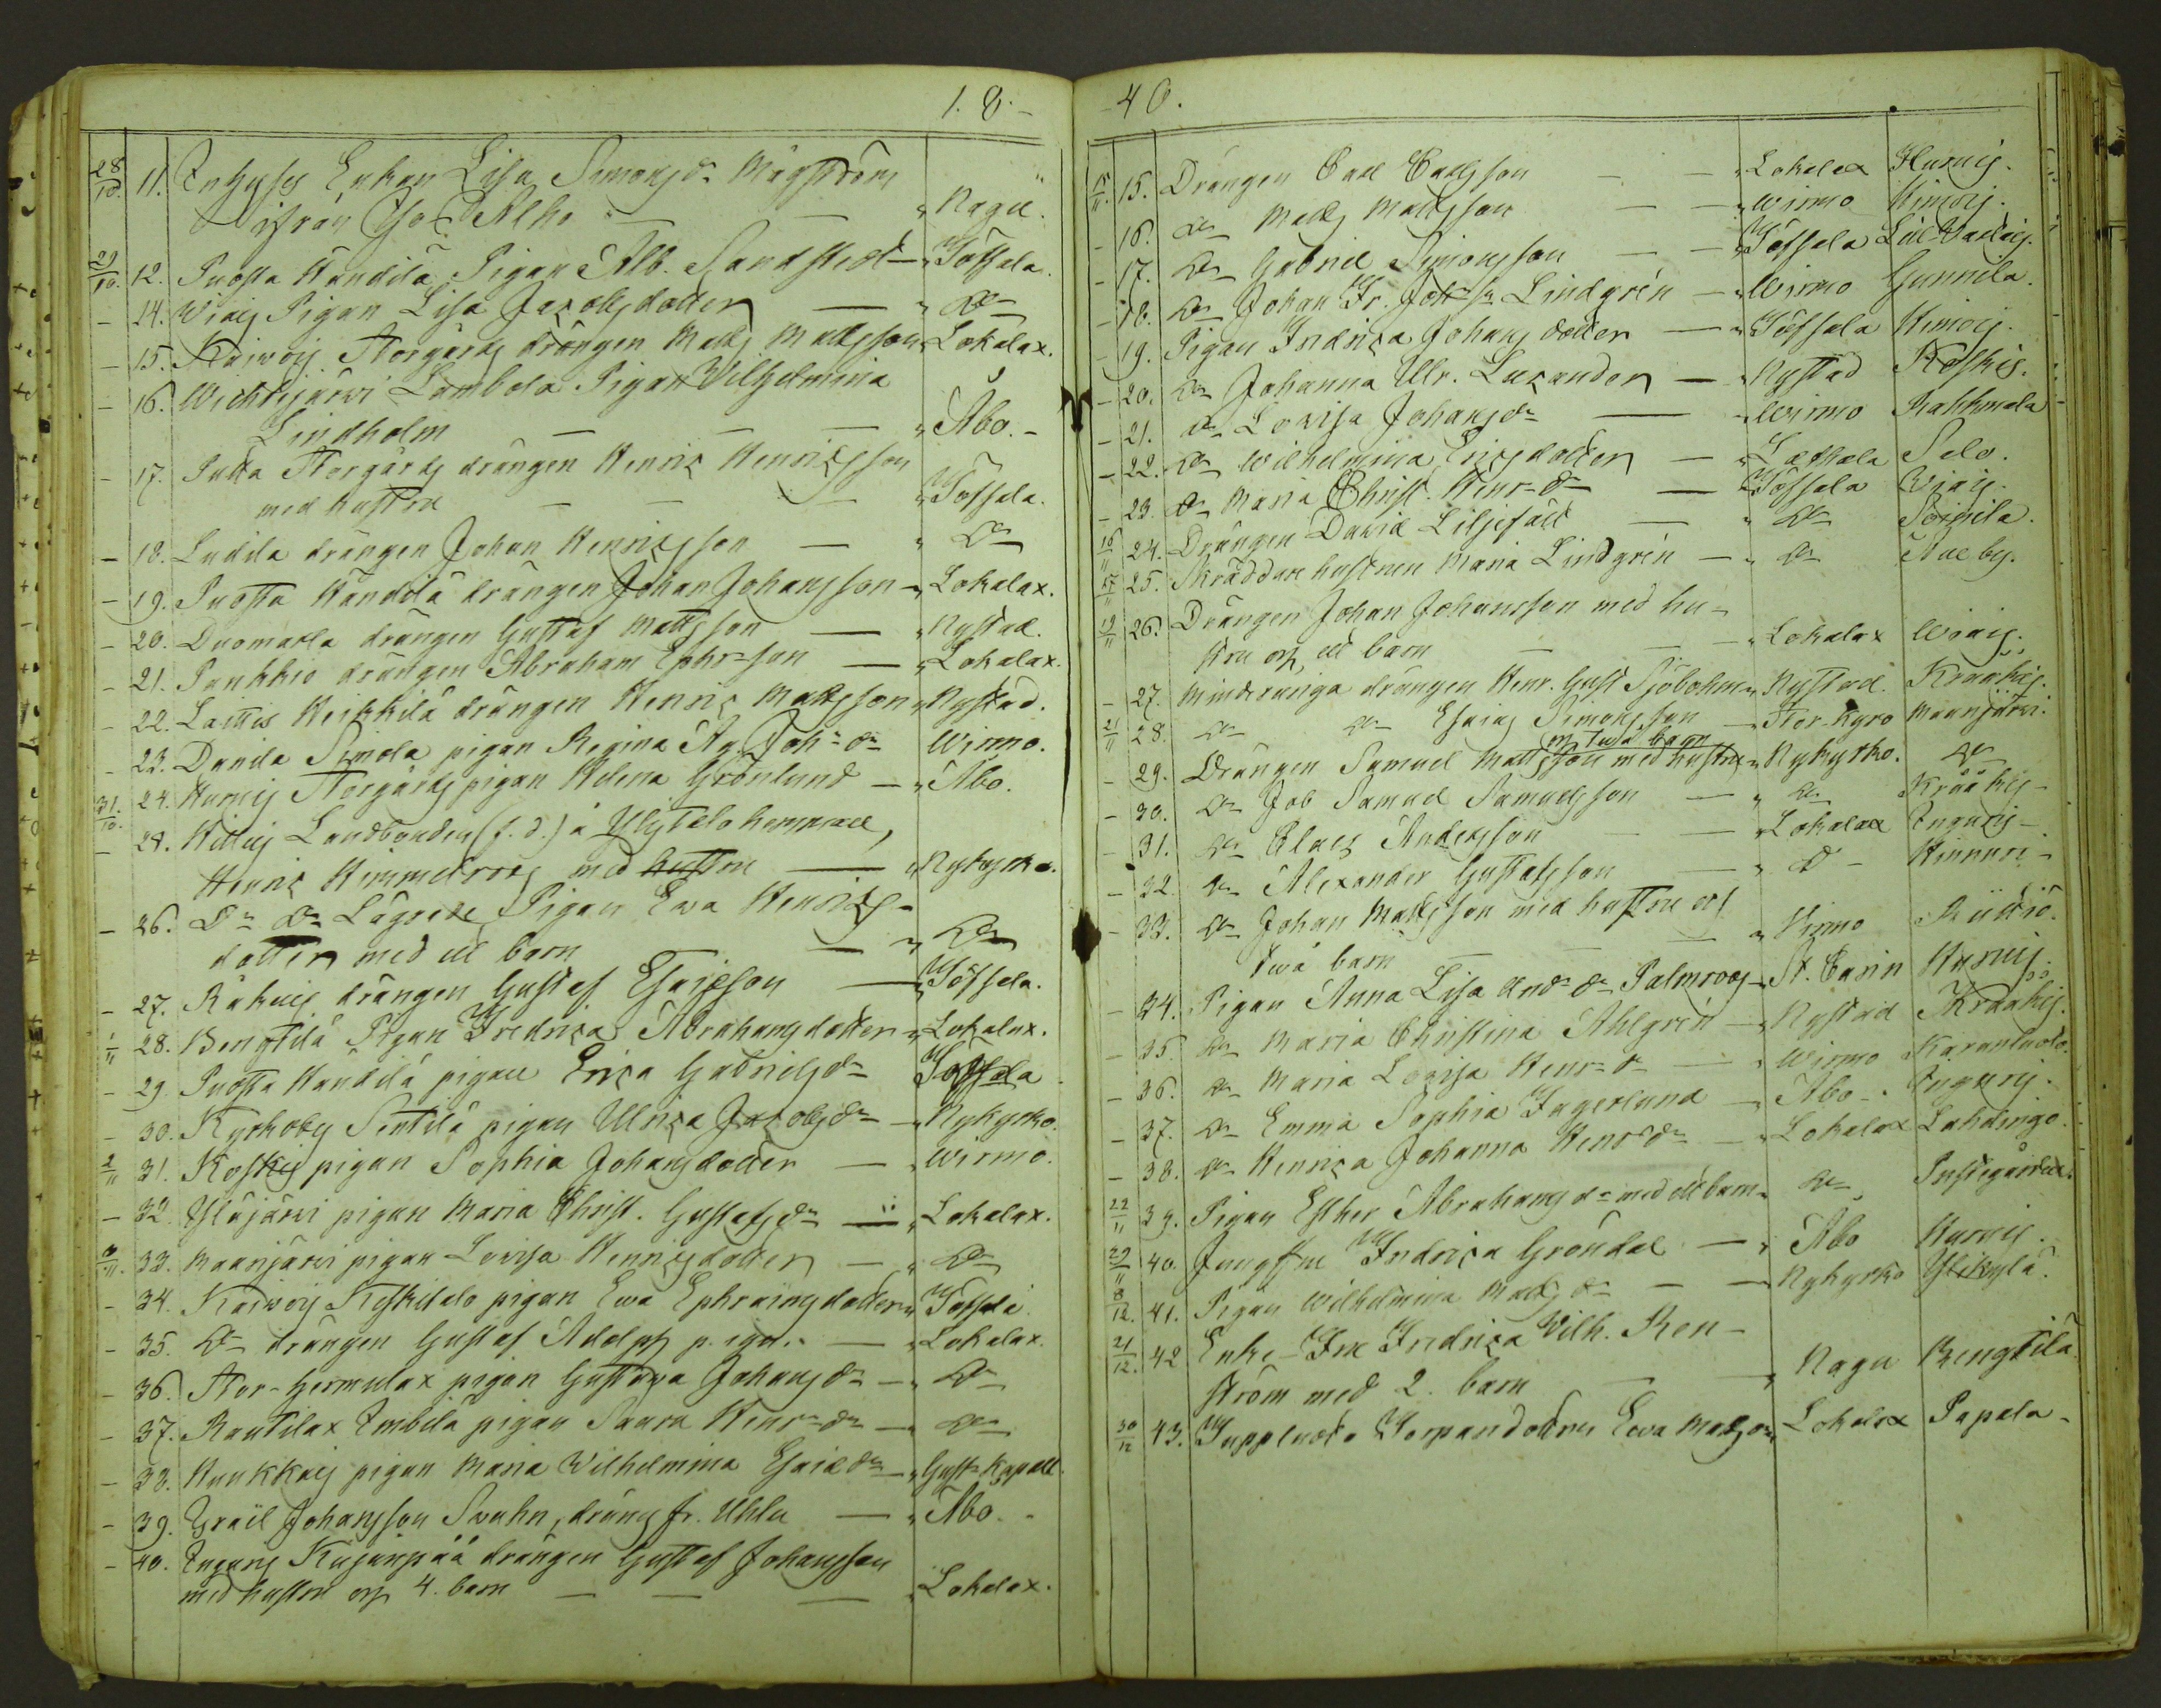 1.8.
28/10. 11. Enkan Lisa Simonsdr Mägström
ifrån Alho — — " Nagu.
29/10. 12. Puosta Händilä Pigan Alb. Sandstedt — " Töfsala.
— 14. Wiais Pigan Lisa Jacobsdotter — " Do
— 15. Kaiwois Storgårds drängen Matts Mattsson " Lokalax.
— 16. Lambola Pigan Wilhelmina
Lindholm — — — " Åbo. —
— 17. Storgårds drängen Henric Henricsson
med hustru — — — " Töfsala.
— 18. Ladila drängen Johan Henricsson — " Do
— 19. Puosta Händilä drängen Johan Johansson — " Lokalax.
— 20. Duomarla drängen Gustaf Mattsson — " Nystad.
— 21. Pankkio drängen Abraham Ephr:son — " Lokalax.
— 22. Lattis Heikkilä drängen Henric Mattsson " Nystad.
— 23. Danila Simola pigan Regina Joh: dr Wirmo.
31/10. 24. Hurnis Storgårds pigan Helena Grönlund — " Åbo.
— 25. Landbonden (f. d.) å Ylistalo hemman,
Henric Himmelroos med hustru — " Nykyrko.
— 26. Do Do Pigan Ewa Henrics-
dotter med ett barn — " Do
— 27. drängen Gustaf Esaiesson — " Töfsala.
1/11 28. Bengtilä Pigan Fredrica Abrahamsdotter " Lokalax.
— 29. Puosta Händilä pigan Erica Gabrielsdr Töfsala
— 30. Kyrkoby Penttilä pigan Ulrica Jacobsdr — " Nykyrko.
2/11 31. Koskis pigan Sophia Johansdotter — " Wirmo.
— 32. Yläjärvi pigan Maria Christ. Gustafsdr — " Lokalax.
6/11. 33. Maanjärvi pigan Lovisa Henricsdotter — " Do
— 34. Kaiwois Keskitalo pigan Ewa Ephraimsdotter " Töfsala.
— 35. Do drängen Gustaf Adolph — " Lokalax.
— 36. Stor-Hermalax pigan Gustava Johansdr — " Do
— 37. Rautilax Embilä pigan Saara Henr: dr — " Do
— 38. Haukkais pigan Maria Wilhelmina Esaiedr — " Gust. Kapell.
— 39. Israil Johansson Swahn, dräng fr. Uhlu — " Åbo.
— 40. Ingaris Kujanpää drängen Gustaf Johansson
med hustru och 4. barn — — — " Lokalax.
46.
15/11. 15. Drängen Carl Carlsson — — " Lokalax Hurnis.
— 16. Do Matts Mattsson — — " Wirmo Himois.
— 17. Do Gabriel Simonsson — — " Töfsala
— 18. Do Johan Fr. Joh:sn Lindgrén — " Wirmo Gunnila.
— 19. Pigan Fredrica Johansdotter — " Töfsala Himois.
— 20. Do Johanna Ulr. Lucander — " Nystad Koskis.
— 21. Do Lovisa Johansdr — " Wirmo Rahkmala
— 22. Do Wilhelmina Ericsdotter — " Lethala Salo.
— 23. Do Maria Christ. Henr: dr — " Töfsala Wiais.
16/11 24. Drängen David Liljefält — " Do
17/11 25. Skräddare hustrun Maria Lindgrén — " Do
19/11 26. Drängen Johan Johansson med hu-
stru och ett barn — — " Lokalax Wiais.
— 27. Minderåriga drängen Henr. Gust. Sjöholm " Nystad. Kraakis.
21/11 28. Do Do Esaias Simonsson — " Stor-Kyro Maanjärvi.
m. twå barn
— 29. Drängen Samuel Mattsson med hustru " Nykyrko. Do
— 30. Do Job Samuel Samuelsson — " Do Krååkis —
— 31. Do Claes Andersson — — " Lokalax Ingaris —
— 32. Do Alexander Gustafsson — " Do — Hinnuri —
— 33. Do Johan Mattsson med hustru och
twå barn — — " Wirmo
— 34. Pigan Anna Lisa And: dr Palmroos — St. Carin Hurnis.
— 35. Do Maria Christina Ahlgrén — " Nystad Kraakis.
— 36. Do Maria Lovisa Henr: dr — " Wirmo
— 37. Do Emma Sophia Fagerlund — " Åbo — Ingaris.
— 38. Do Henrica Johanna Henr: dr — " Lokalax Lahdingo.
22/11 39. Pigan Esther Abrahamsdr med ett barn " Do Prästgården.
29/11 40. Jungfru Fredrica Gröndal — " Åbo Hurnis.
8/12. 41. Pigan Wilhelmina Mattsdr — " Nykyrko Ylikylä.
21/12. 42 Enke-Fru Fredrica Wilh. Ren-
ström med 2. barn — " Nagu Bengtilä
30/12 43. Torpardottren Ewa Matsdr " Lokalax Papala —